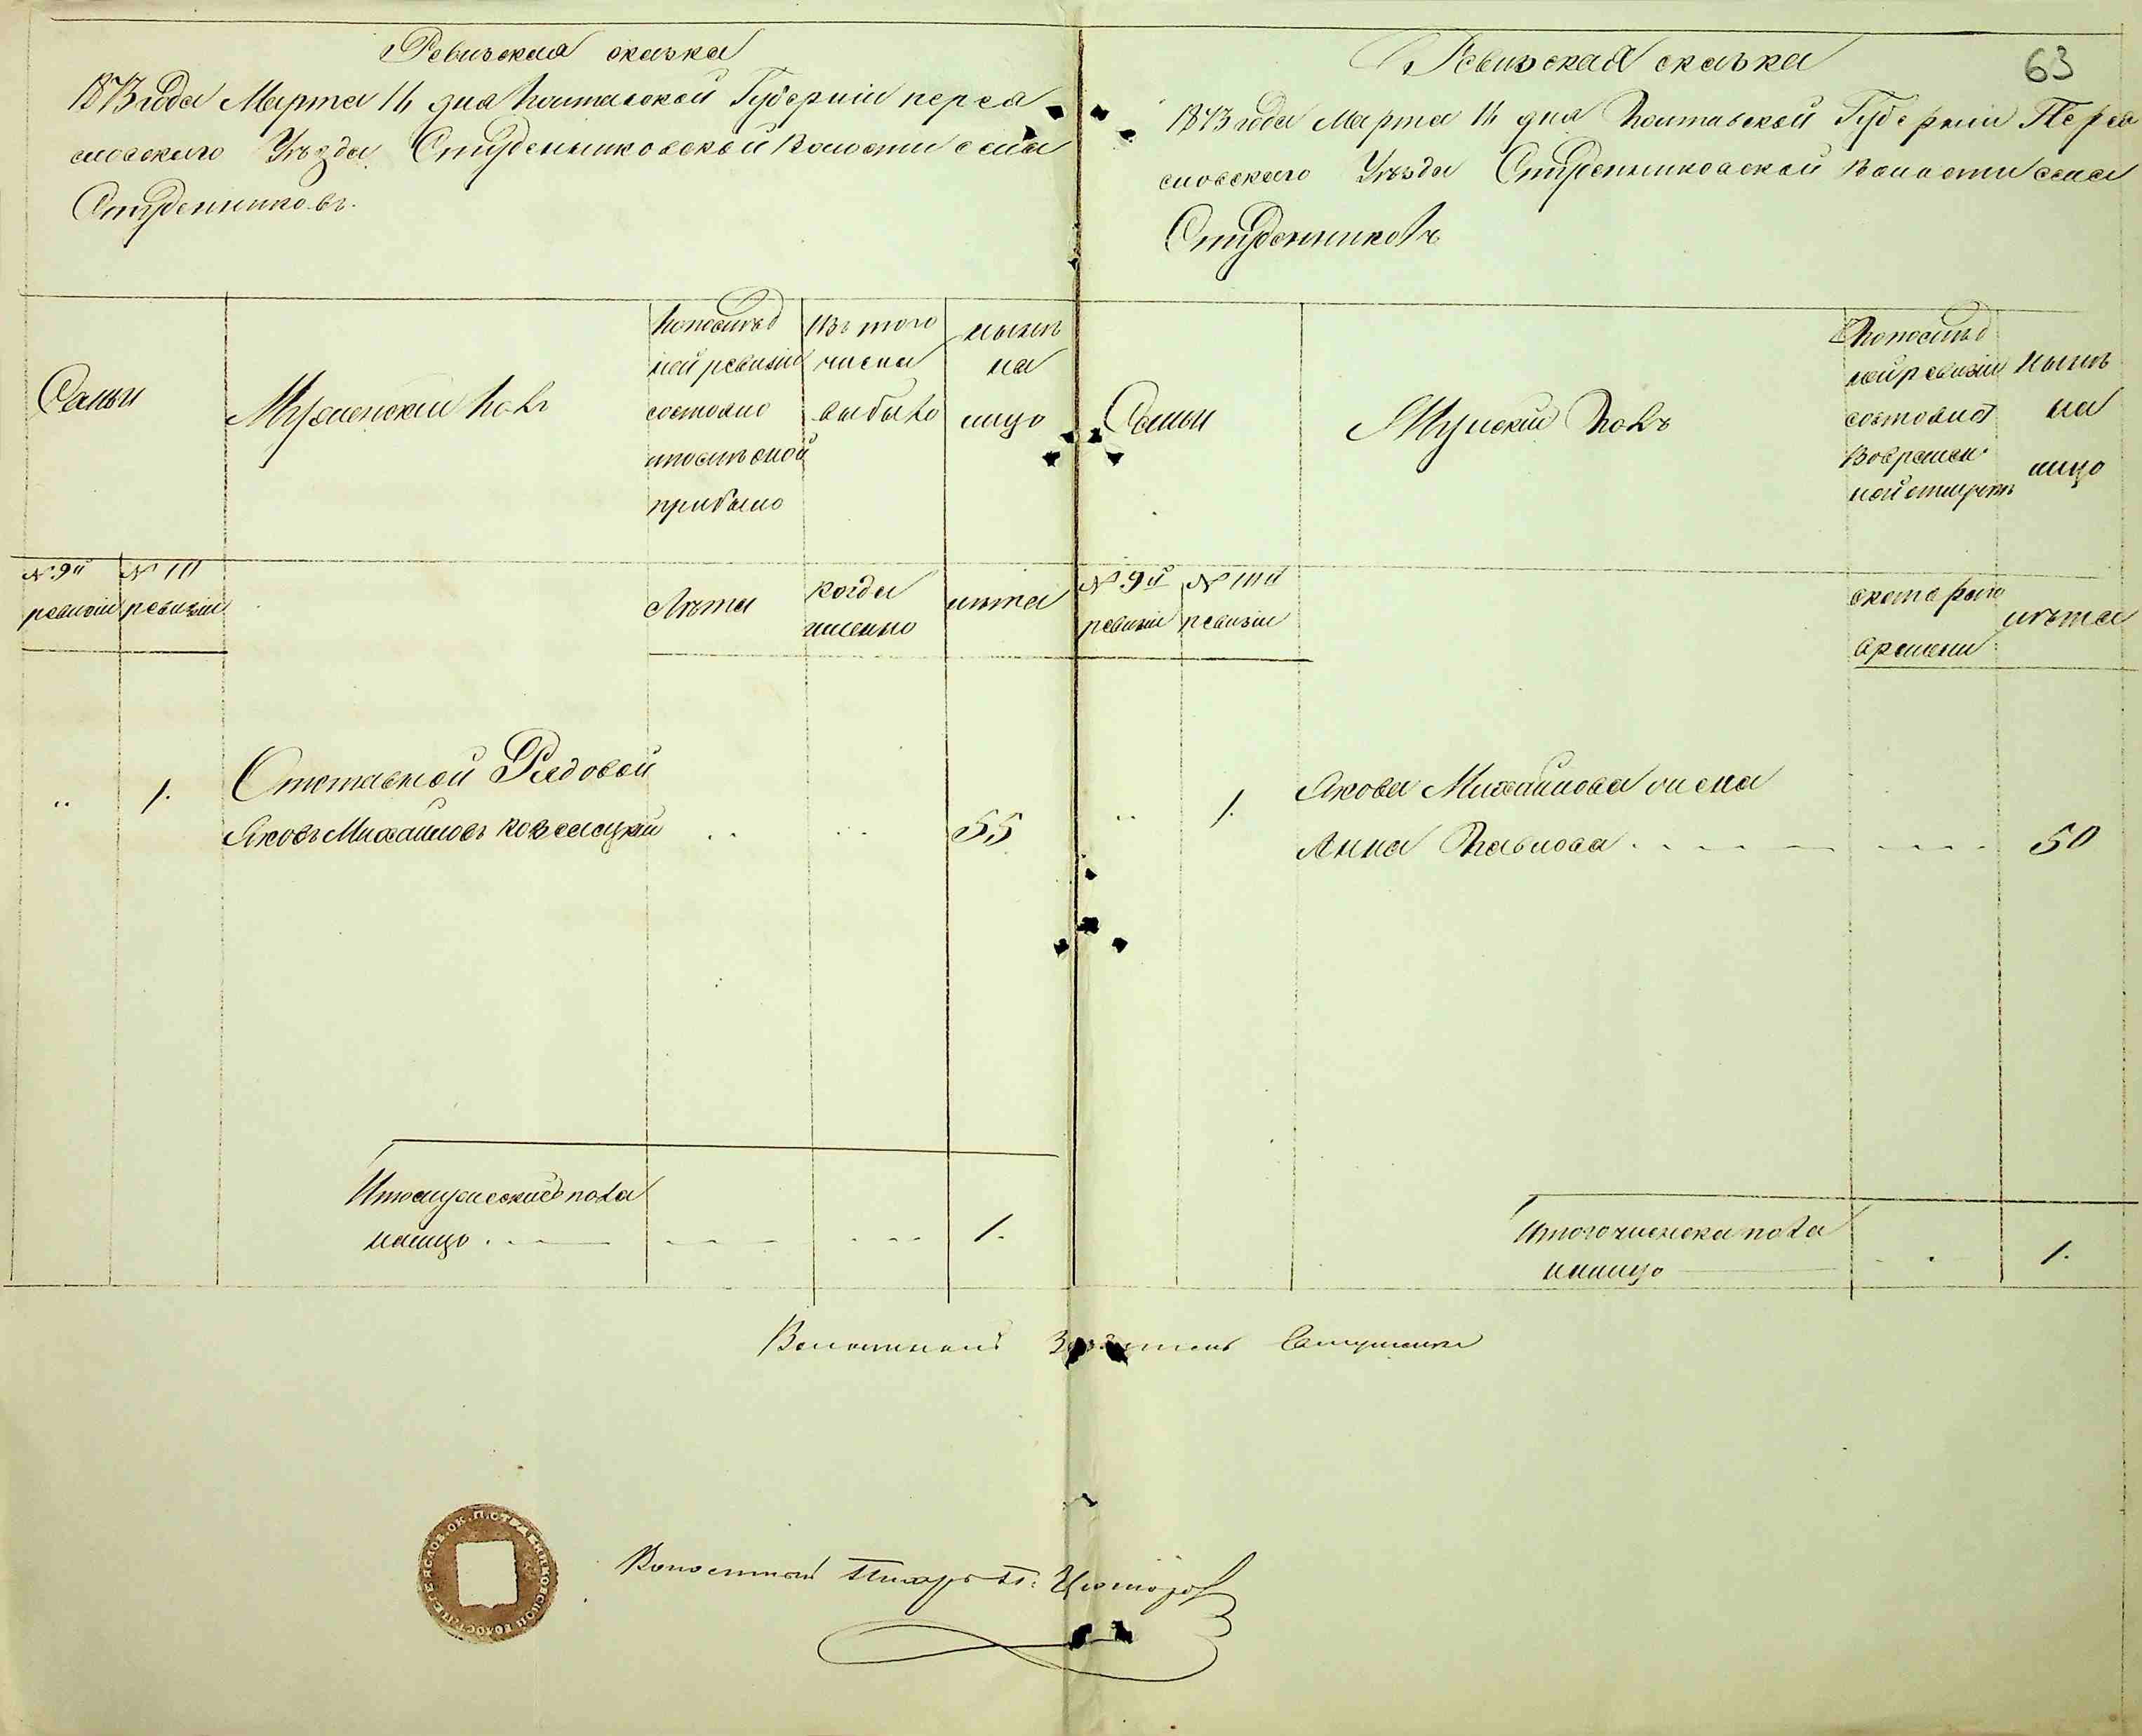 Ревизская сказка
1873 года Марта 14 дня Полтавской Губернии Перея
словского Уѣзда Студениковской Волости села
Студениковъ.
Семьи
Мужеский полъ
По послѣд
ней ревизіи
состояло
и послѣ оной
прибыло
Изъ того
числа
выбыло
нынѣ
на
лицо
№ 9й
ревизіи
№ 10
ревизіи
Лѣта
когда
именно
лѣта
..
1.
Отставной Рядовой
Яковъ Михайловъ
55
Итого мужеска пола
налицо
1.
63
Ревизская сказка
1873 года Марта 14 дня Полтавской Губерніи Перея
словского Уѣзда Студениковской Волости села
Студениковъ
Семьи
полъ
По послѣд
ней ревизіи
состояло
Во времен
ной отлучкѣ
нынѣ
на
лицо
№ 9й
ревизіи
№ 10й
ревизіи
съ котораго
времени
лѣта
..
1.
Якова Михайлова жена
Анна Павлова
50
Итого женска пола
налицо
1.
Волостной
Волостной Писарь